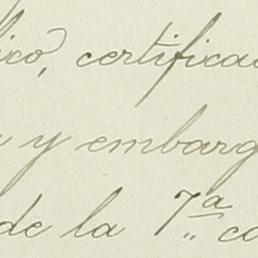 ico, certifica
y embarg
de la 7.ª co